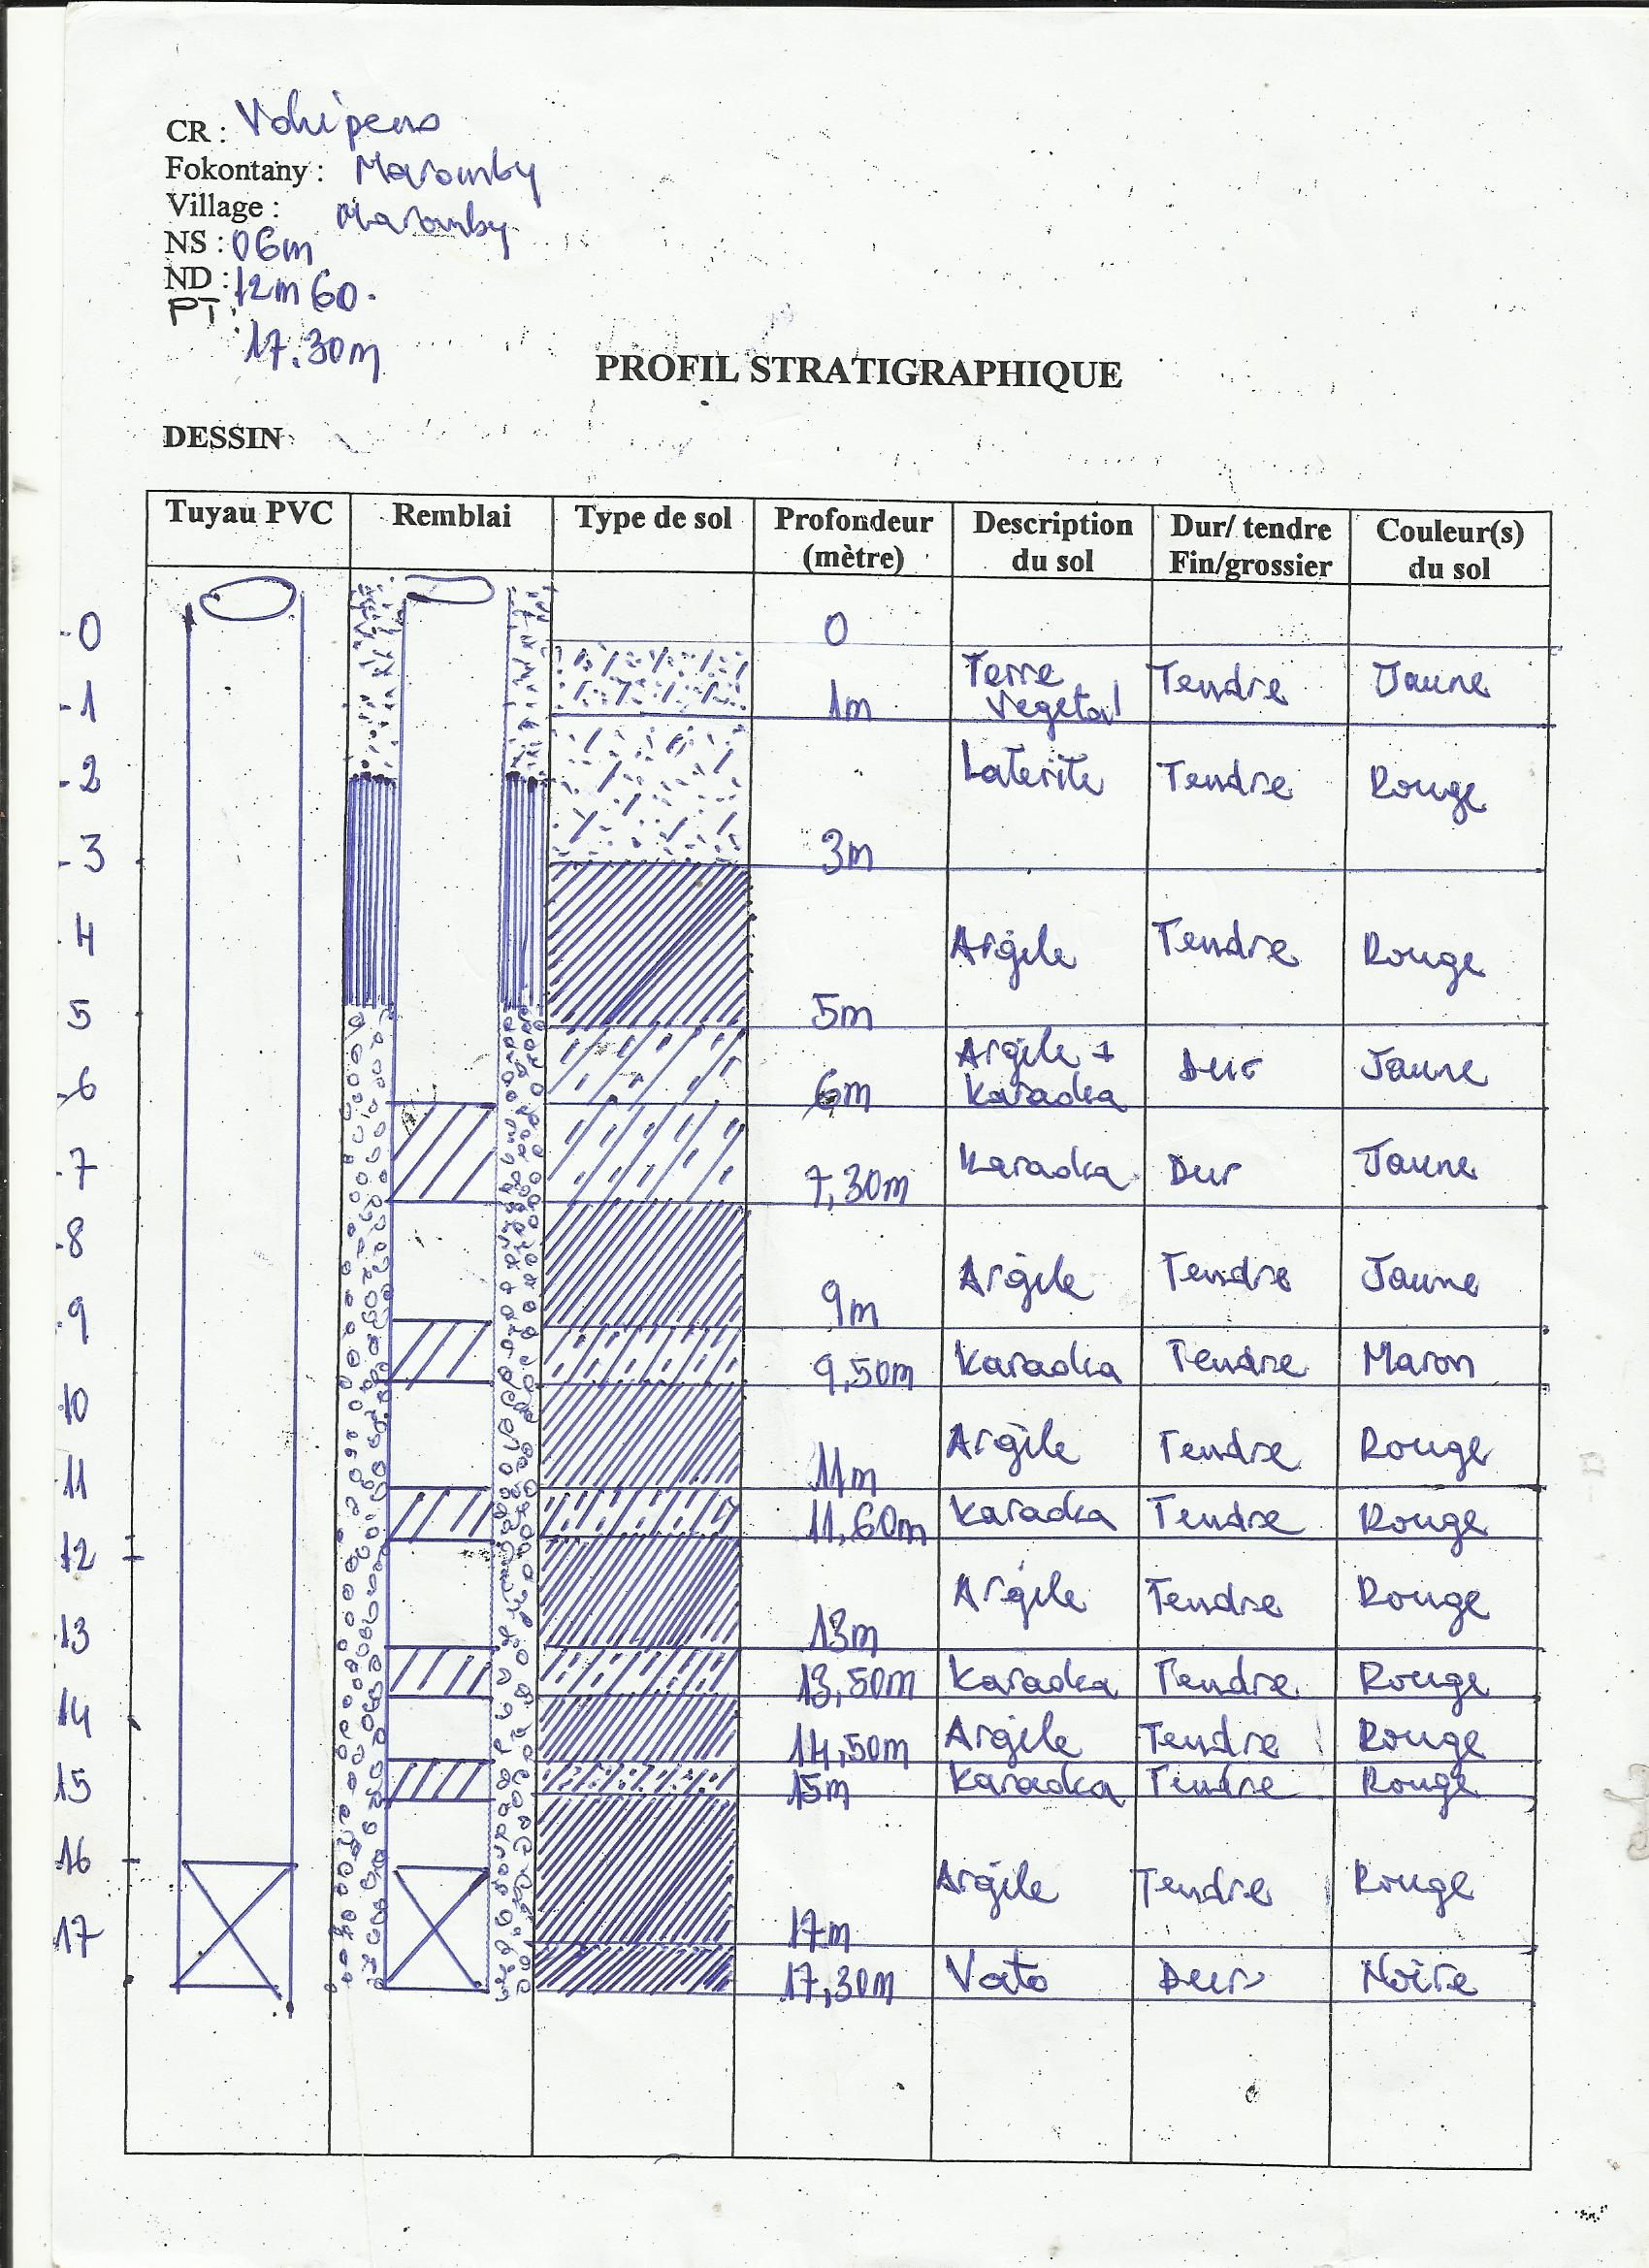 CR : Vohipeno
Fokontany : Maromby
Village : Maromby
NS : 06m
ND : 12m60.
PT :
17.30m
PROFIL STRATIGRAPHIQUE
DESSIN
Tuyau PVC Remblai Type de sol Profondeur (mètre) Description du sol Dur/ tendre Fin/grossier Couleur(s) du sol
-0 0
-1 1m Terre Vegetal Tendre Jaune
-2 Laterite Tendre Rouge
-3 3m
4 Argile Tendre Rouge
5 5m
-6 6m Argile + Karaoka Dur Jaune
-7 7,30m Karaoka Dur Jaune
-8 Argile Tendre Jaune
9 9m
9,50m Karaoka Tendre Maron
10 Argile Tendre Rouge
11 11m
11,60m Karaoka Tendre Rouge
12 Argile Tendre Rouge
13 13m
13,50m Karaoka Tendre Rouge
14 14,50m Argile Tendre Rouge
15 15m Karaoka Tendre Rouge
16 Argile Tendre Rouge
17 17m
17,30m Vato Dur Noire